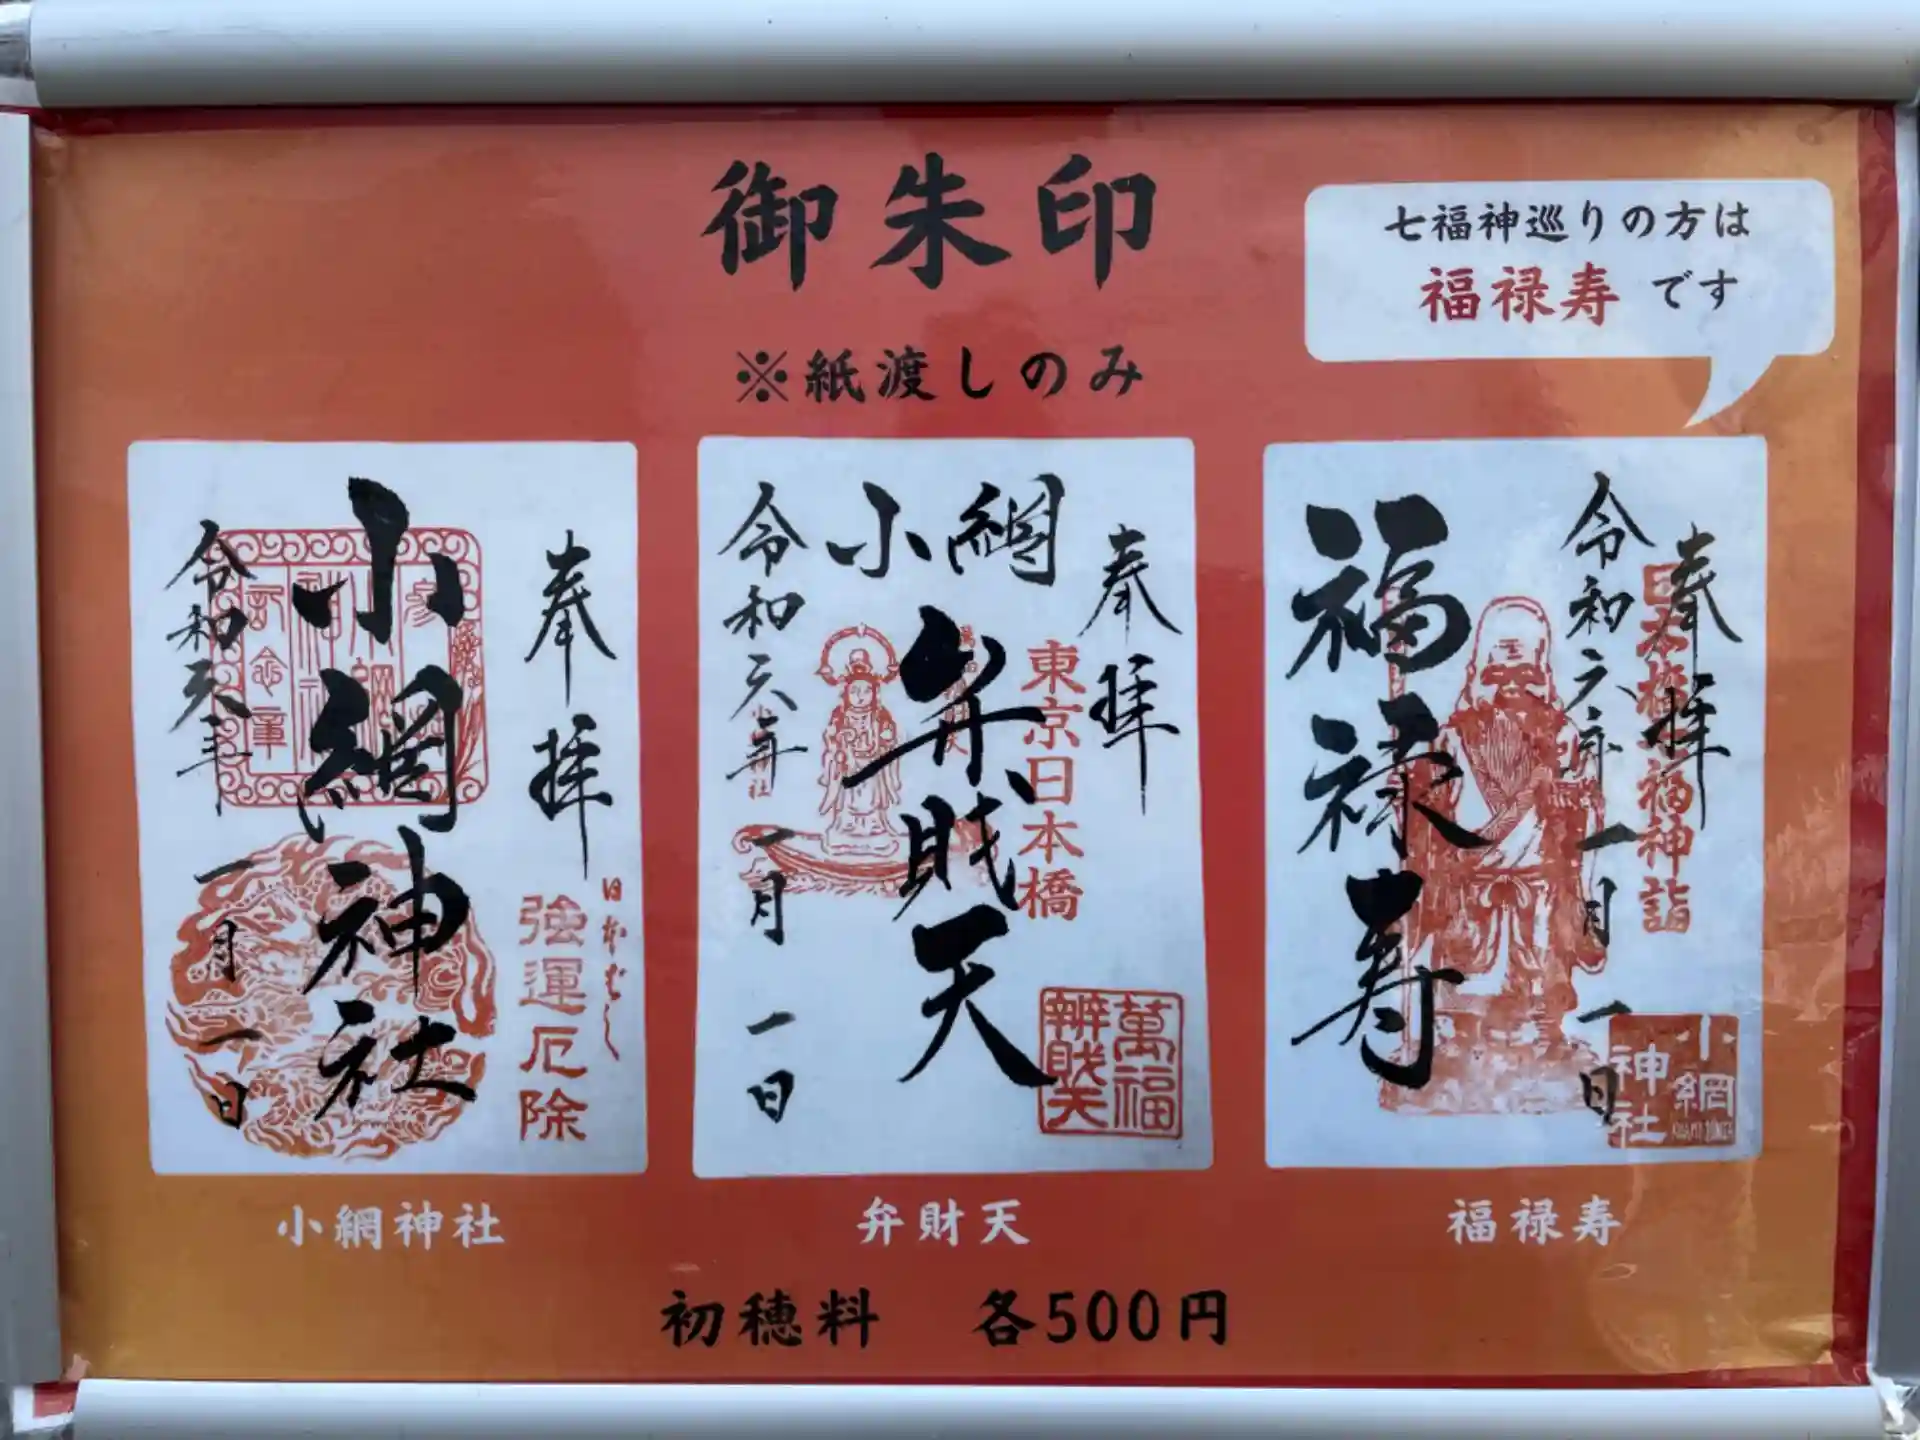 御朱印
※紙渡しのみ
七福神巡りの方は
福禄寿です
奉拝
小網神社
令和六年
一月一日
日本ばし
強運厄除
奉拝
小網
弁財天
令和六年
一月一日
東京日本橋
萬福
辨財天
奉拝
日本橋七福神詣
令和六年
一月一日
福禄寿
小網
神社
小網神社
弁財天
福禄寿
初穂料 各500円